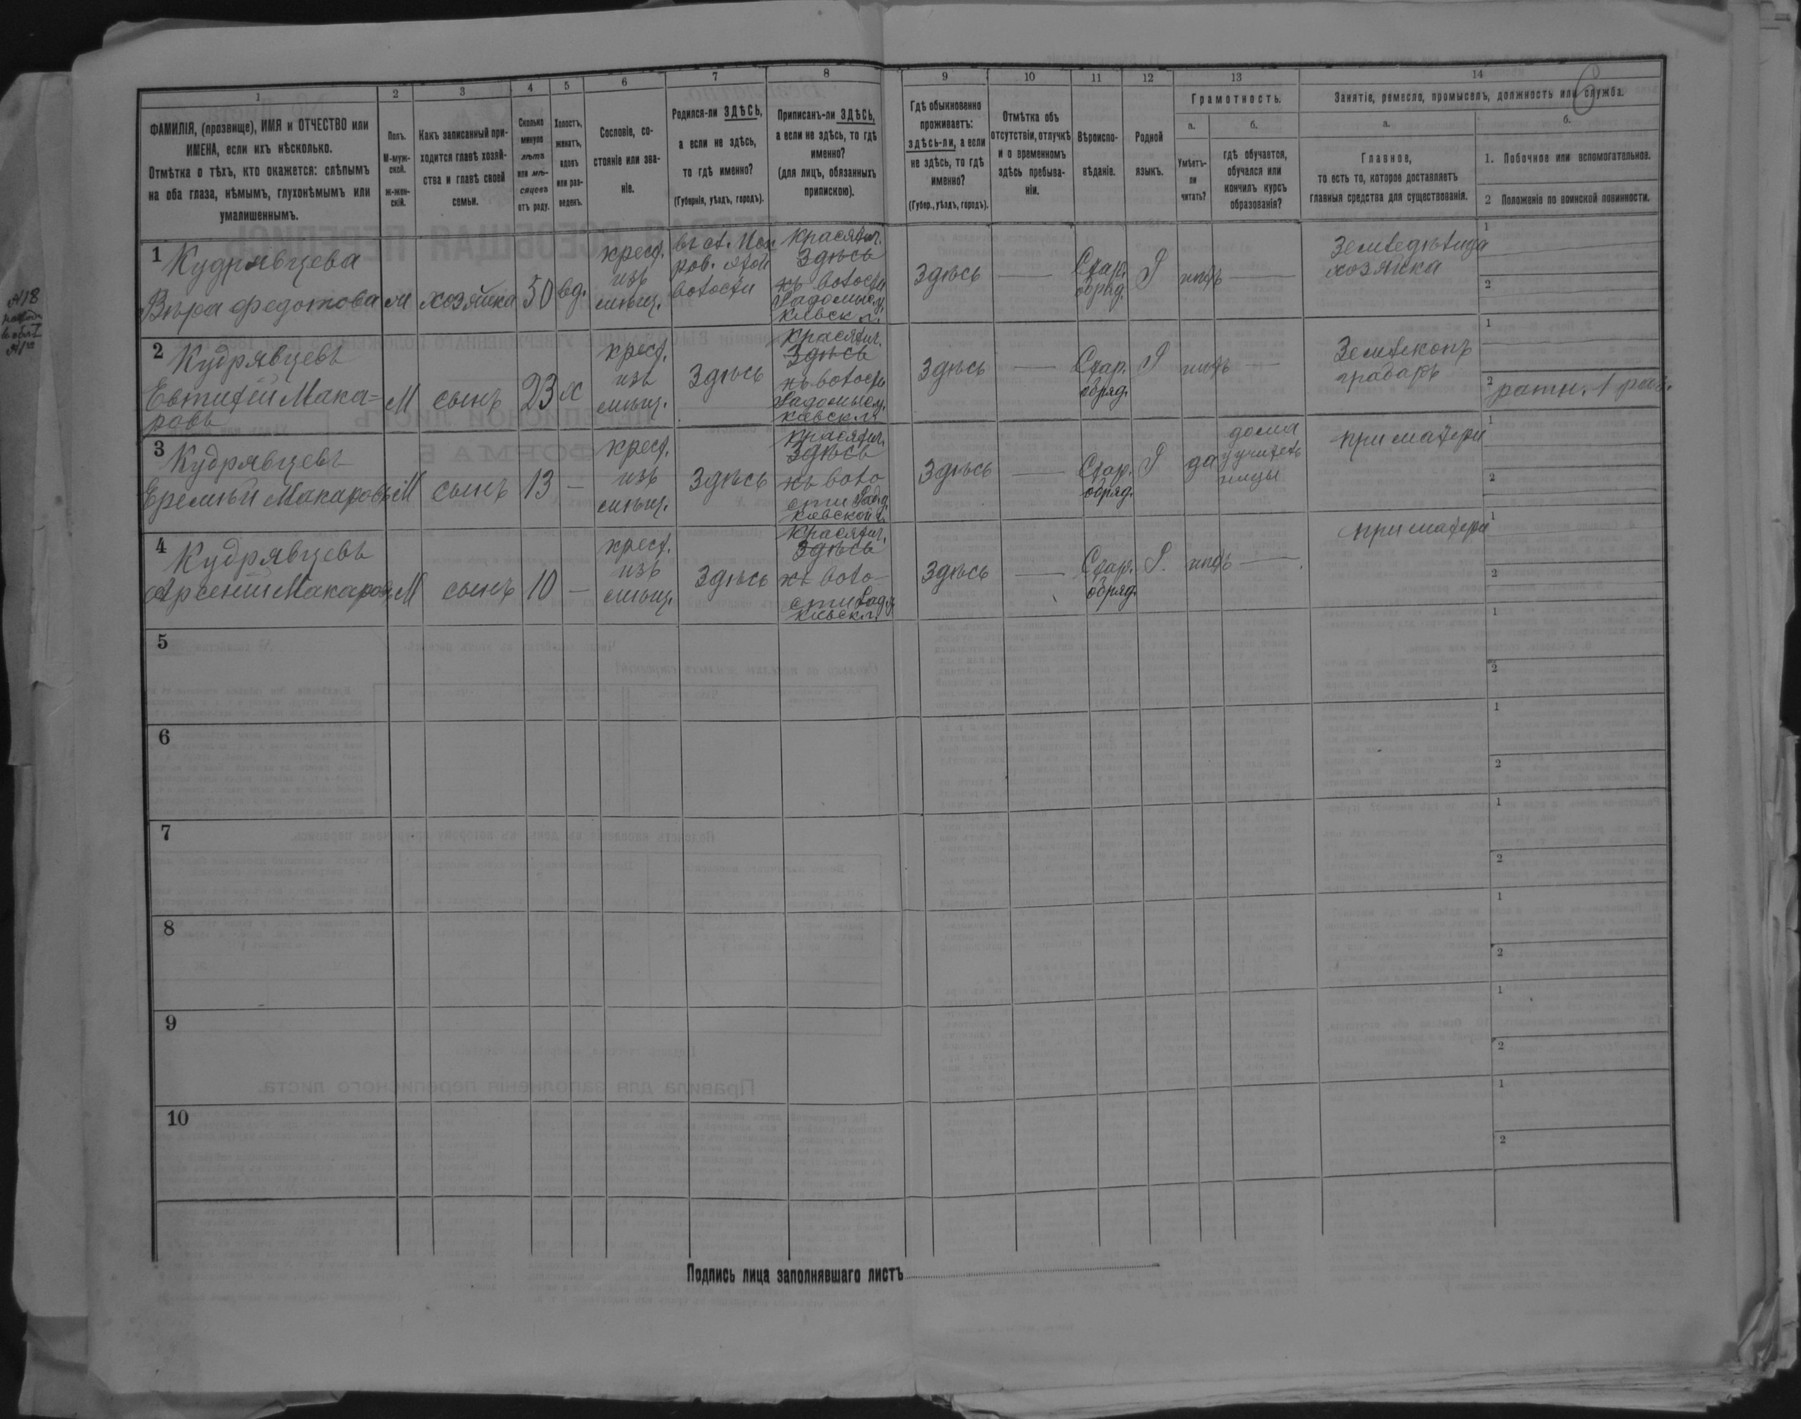 1
2
3
4
5
6
7
8
9
10
11
12
13
14
ФАМИЛІЯ, (прозвище), ИМЯ и ОТЧЕСТВО или
ИМЕНА, если ихъ нѣсколько.
Отмѣтка о тѣхъ, кто окажется: слѣпымъ
на оба глаза, нѣмымъ, глухонѣмымъ или
умалишеннымъ.
Полъ.
М-муж-
ской.
ж-жен-
скій.
Какъ записанный при-
ходится главѣ хозяй-
ства и главѣ своей
семьи.
Сколько
минуло
лѣтъ
или мѣ-
сяцевъ
отъ роду.
Холостъ,
женатъ,
вдовъ
или раз-
веденъ.
Сословіе, со-
стояніе или зва-
ніе.
Родился-ли ЗДѢСЬ,
а если не здѣсь,
то гдѣ именно?
(Губернія, уѣздъ, городъ).
Приписанъ-ли ЗДѢСЬ,
а если не здѣсь, то гдѣ
именно?
(для лицъ, обязанныхъ
припискою).
Гдѣ обыкновенно
проживаетъ:
здѣсь-ли, а если
не здѣсь, то гдѣ
именно?
(Губер., уѣздъ, городъ).
Отмѣтка объ
отсутствіи, отлучкѣ
и о временномъ
здѣсь пребыва-
ніи.
Вѣроиспо-
вѣданіе.
Родной
языкъ.
Грамотность.
а.
Умѣетъ-
ли
читать?
б.
гдѣ обучается,
обучался или
кончилъ курсъ
образованія?
Занятіе, ремесло, промыселъ, должность или служба.
6
а.
Главное,
то есть то, которое доставляетъ
главныя средства для существованія.
б.
1. Побочное или вспомогательное.
2 Положеніе по воинской повинности.
1 Кудрявцева
Вѣра Федотова м хозяйка 50 вд. крест. изъ мѣщ.
волости
Красятич.
Здѣсь
волости
Радомысл.
Кіевск. г.
здѣсь — Стар. обряд. Р нѣтъ —
Земледѣлица
хозяйка
1
2
2 Кудрявцевъ
Евтихій Мака-
ровъ
М сынъ 23 х крест. изъ мѣщ. здѣсь
Красятич.
Здѣсь
волости
Радомысл.
Кіевск. г.
здѣсь — Стар. обряд. Р нѣтъ —
Землекопъ
грабарь
1
2 ратн. 1 раз.
3 Кудрявцевъ
Еремѣй Макаровъ М сынъ 13 — крест. изъ мѣщ. здѣсь
Красятич.
Здѣсь
воло
сти Рад.
Кіевской г.
здѣсь — Стар. обряд. Р да дома у учитель ницы
при матери
1
2
4 Кудрявцевъ
Арсеній Макаров. М сынъ 10 — крест. изъ мѣщ. здѣсь
Красятич.
Здѣсь
воло-
сти Рад.
Кіевск. г.
здѣсь — Стар. обряд. Р. нѣтъ —
при матери
1
2
5
1
2
6
1
2
7
1
2
8
1
2
9
1
2
10
1
2
Подпись лица заполнявшаго листъ